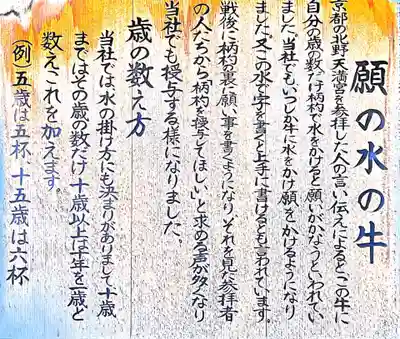 願の水の牛
京都の北野天満宮を参拝した人の言い伝えによるとこの牛に
自分の歳の数だけ柄杓で水をかけると願いがかなうといわれてい
ました。当社でもいつしか牛に水をかけ願をかけるようになり
ました。又この水で字を書くと上手に書けるとも言われています。
戦後に柄杓の裏に願い事を書くようになり、それを見た参拝者
の人たちから柄杓を授与してほしいと求める声が多くなり
当社でも授与する様になりました。
歳の数え方
当社では、水の掛け方にも決まりがありまして、十歳
まではその歳の数だけ、十歳以上は十年を一歳と
数えこれを加えます。
(例)五歳は五杯、十五歳は六杯